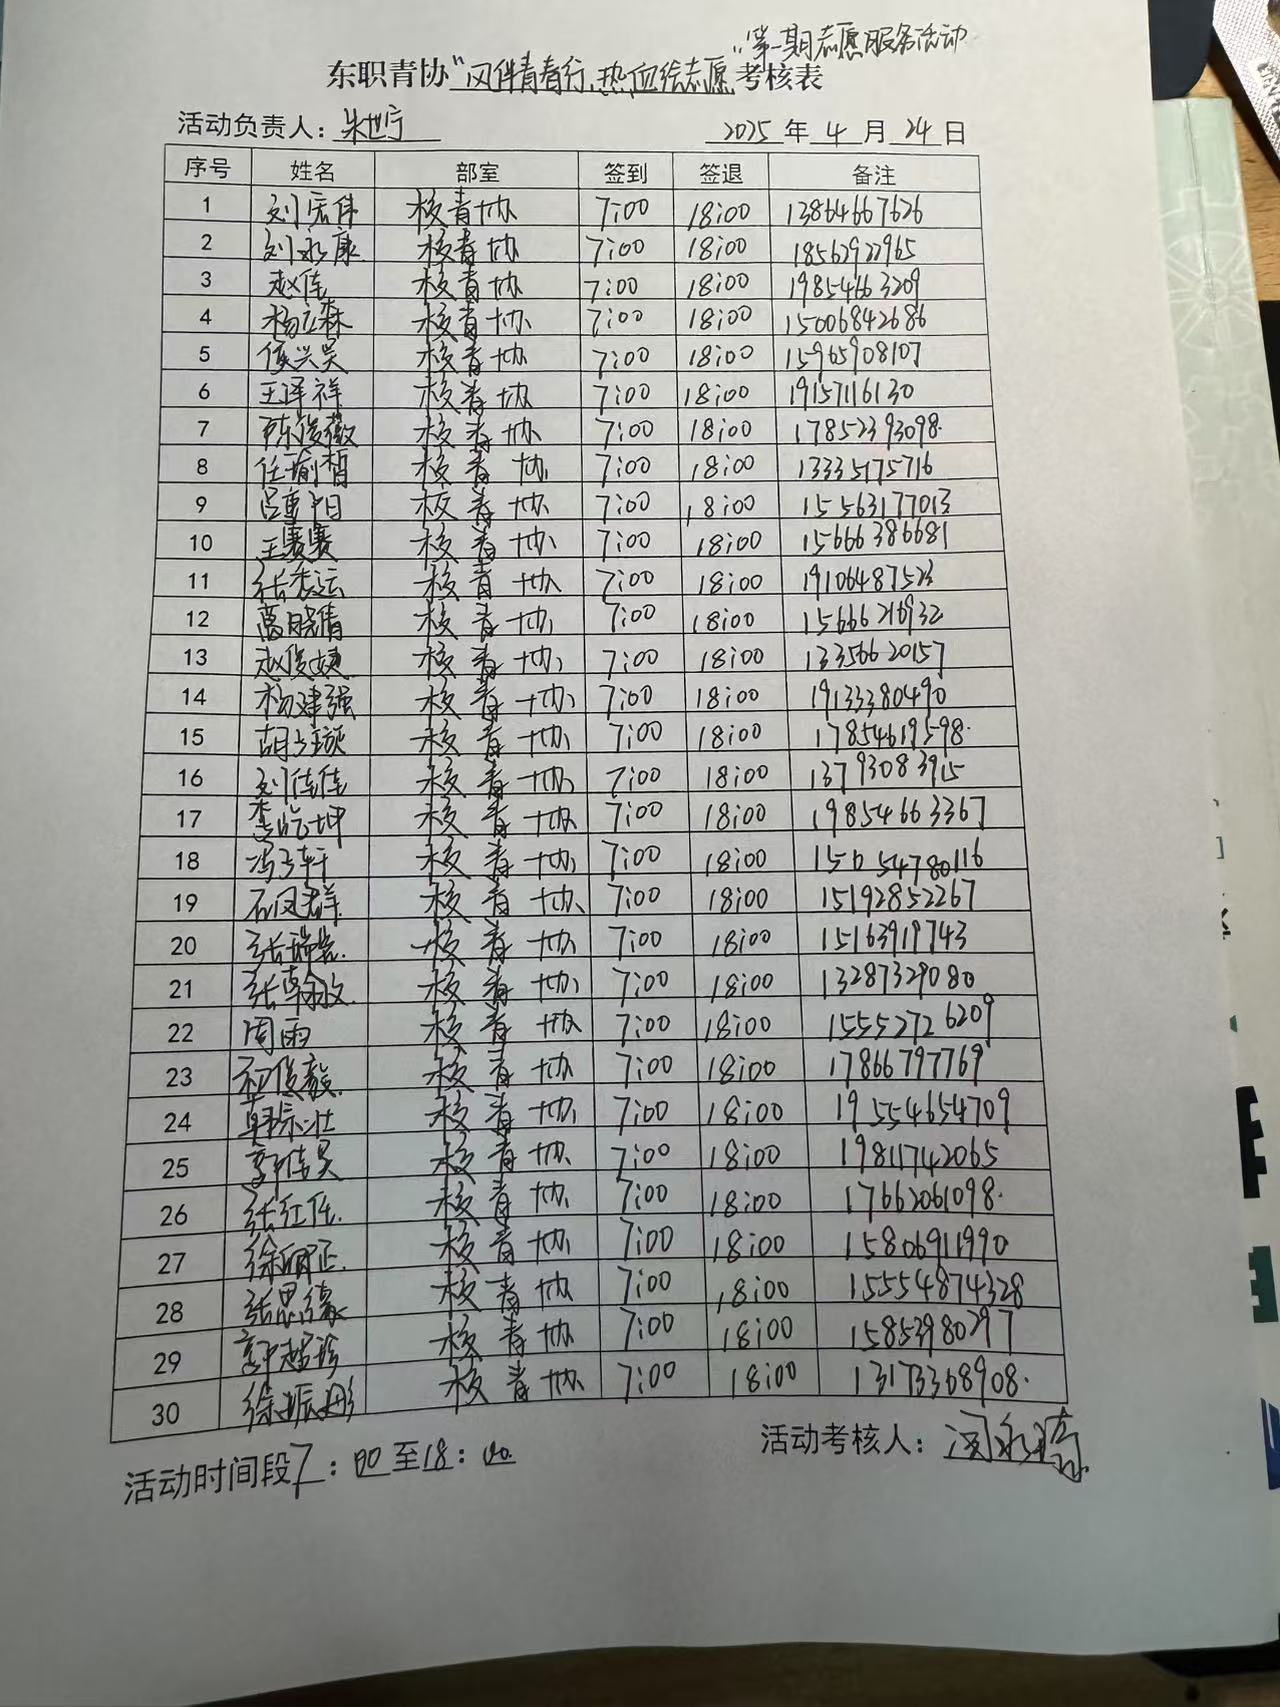 "第一期志愿服务活动
东职青协"闪伴青春行,热血绘志愿考核表
活动负责人: 朱世宁 2025 年 4 月 24 日
序号 姓名 部室 签到 签退 备注
1 刘宏伟 校青协 7:00 18:00 13864667626
2 刘永康 校青协 7:00 18:00 18562922965
3 赵佳 校青协 7:00 18:00 19854663209
4 杨立森 校青协 7:00 18:00 15006842686
5 侯兴昊 校青协 7:00 18:00 15965908107
6 王泽祥 校青协 7:00 18:00 19157116130
7 陈俊薇 校青协 7:00 18:00 17852393098
8 任瑜皙 校青协 7:00 18:00 13335175716
9 校青协 7:00 18:00 15563177013
10 王赛赛 校青协 7:00 18:00 15666386681
11 张李运 校青协 7:00 18:00 19106487523
12 高晓倩 校青协 7:00 18:00 15666216932
13 赵俊婕 校青协 7:00 18:00 13356620157
14 杨建强 校青协 7:00 18:00 19133380490
15 校青协 7:00 18:00 17854619598
16 刘佳佳 校青协 7:00 18:00 13793083915
17 李屹坤 校青协 7:00 18:00 19854663367
18 冯子轩 校青协 7:00 18:00 15054780116
19 石凤群 校青协 7:00 18:00 15192852267
20 校青协 7:00 18:00 15163919743
21 张翰文 校青协 7:00 18:00 13287329080
22 周雨 校青协 7:00 18:00 15552726209
23 初俊毅 校青协 7:00 18:00 17866797769
24 校青协 7:00 18:00 19554654709
25 郭佳昊 校青协 7:00 18:00 19811742065
26 张红任 校青协 7:00 18:00 17662061098
27 徐明正 校青协 7:00 18:00 15806911990
28 张思缘 校青协 7:00 18:00 15554874328
29 郭超珍 校青协 7:00 18:00 15853980297
30 徐振彤 校青协 7:00 18:00 13173368908
活动时间段7:00至18:00 活动考核人: